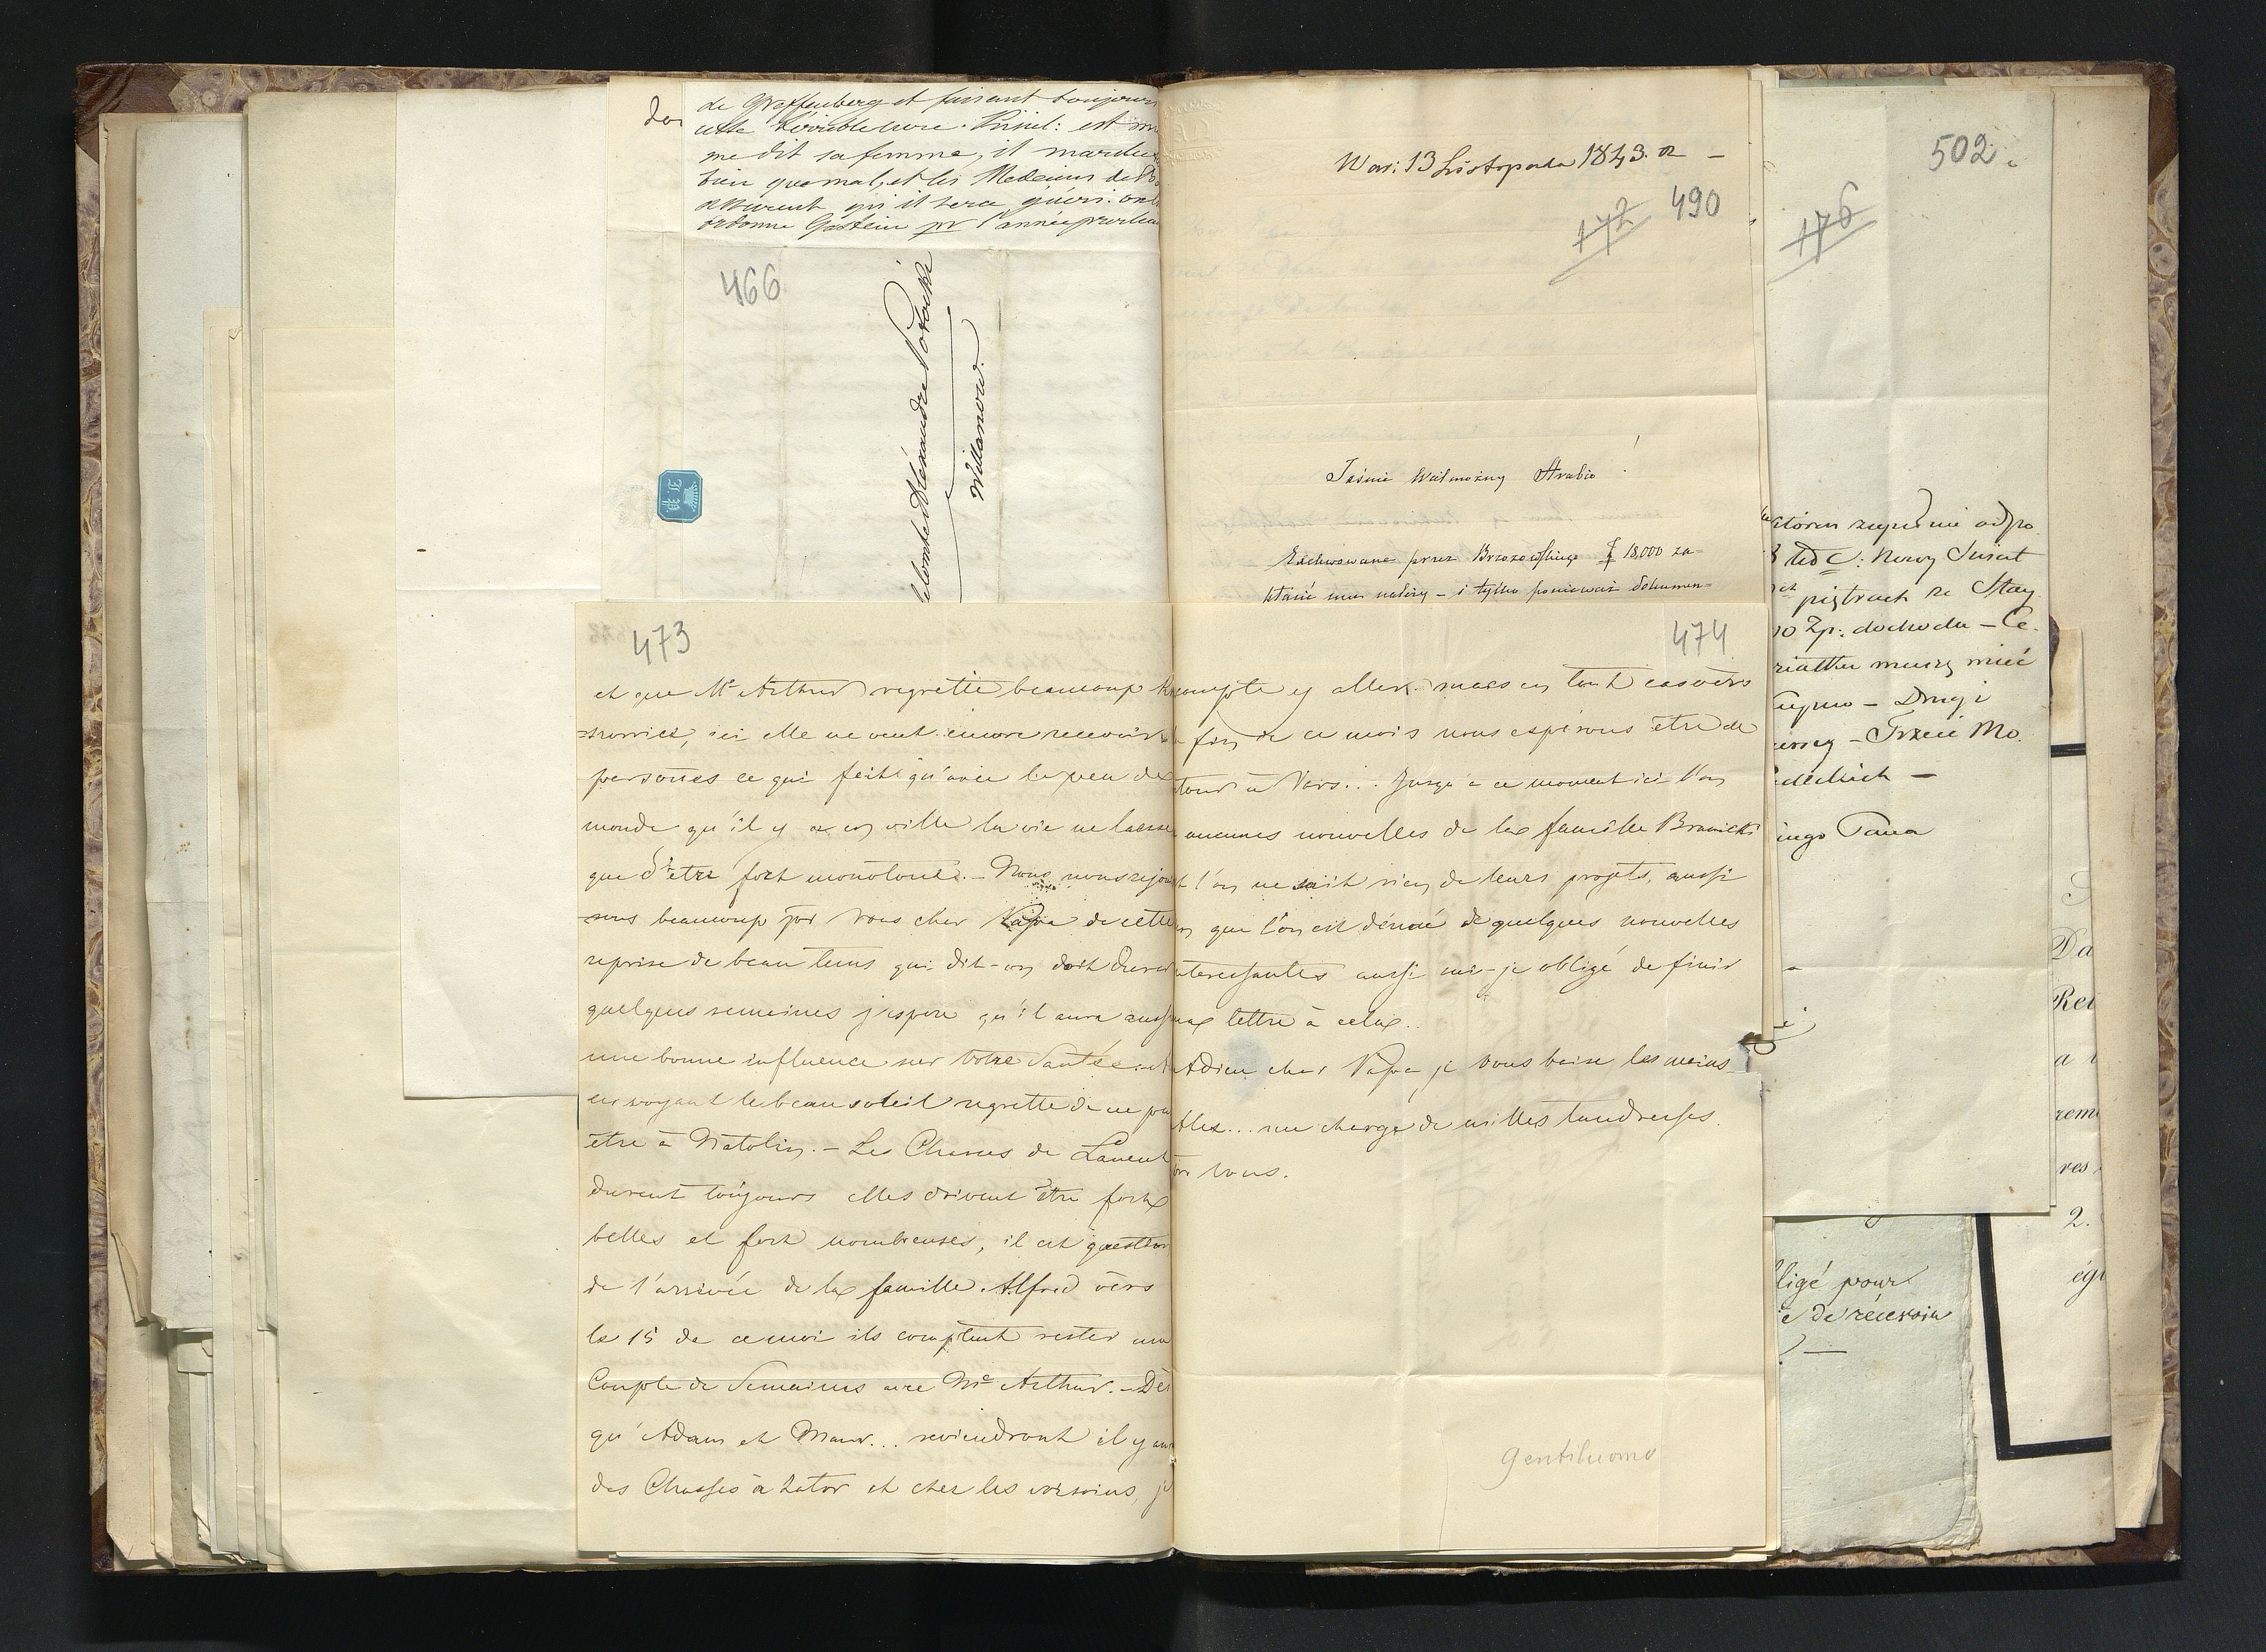 de Graffenberg et faisant toujours
cette terrible cure. est
me dit sa femme, il marche
bien que mal, et les Medecins de
assurent qu'il sera guéri. ont
ordonné Gastein pr l'année
466
Alexandre Potocki
Willanow.
473
et que Me Arthur regrette beaucoup
ici elle ne veut encore recevoir
persones ce qui fait qu'avec le peu de
monde qu'il y a en ville la vie ne laisse
que d'être fort monotone. - Nous nous rejouis
sons beaucoup pr vous cher Papa de cette
reprise de beau tems qui dit-on doit durer
quelques semaines j'espère qu'il aura aussi
une bonne influence sur votre Santée et
en voyant le beau soleil regrette de ne pas
être à Natolin. - Les Chasses de Lancut
durent toujours elles doivent être fort
belles et fort nombreuses, il est question
de l'arrivée de la famille Alfred vèrs
le 15 de ce moi ils comptent rester une
Couple de Semaines avec Me Arthur. - Dès
qu'Adam et Maur... reviendront il y aura
des Chasses à Zator et chez les voisins, je
War: 13 Listopada 1843. r -
172 490
Jaśnie Wielmożny Hrabio!
Zachowane przez Brzozowskiego 18,000 za-
należy - i tylko ponieważ dokumen=
474
compte y aller. mais en tout cas vèrs
la fin de ce mois nous espèrons être de
retour à Vars... Jusqu'à ce moment ici l'on
aucunes nouvelles de la famille Branicki
et l'on ne sait rien de leurs projets, aussi
que l'on est dénué de quelques nouvelles
interessantes aussi suis-je obligé de finir
ma lettre à cela.
Adieu cher Papa je vous baise les mains
Alex... me charge de milles tendresses
pr vous.
Gentiluomo
502.
176
zupełnie odpo
Nowy Świat
piętrach ze Stay
Zp: dochodu - Ce.
muszę mieć
- Drugi
- Trzeci Mo.
Pana
bligé pour
de récevoir
Da
Rei
a
rem
res
2.
égi